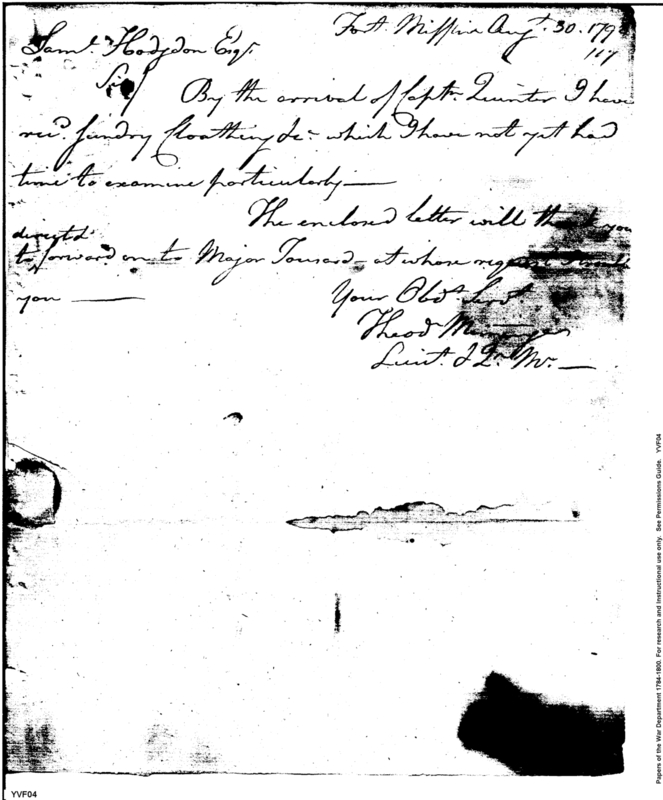 Fort Mifflin Augt. 30. 179
117
Saml. Hodgdon Esqr.
Sir/ By the arrival of Captn. Quinter I have
recd. sundry Cloathing &c- which I have not yet had
time to examine particularly—
The enclosed letter will thank you
directd
to forward on to Major Tousard- at whose request I trouble
you —
Your Obdt. Servt
Theod
Lieut. & Qr. Mr. —
Papers of the War Department 1784-1800. For research and instructional use only. See Permissions Guide. YVF04
YVF04